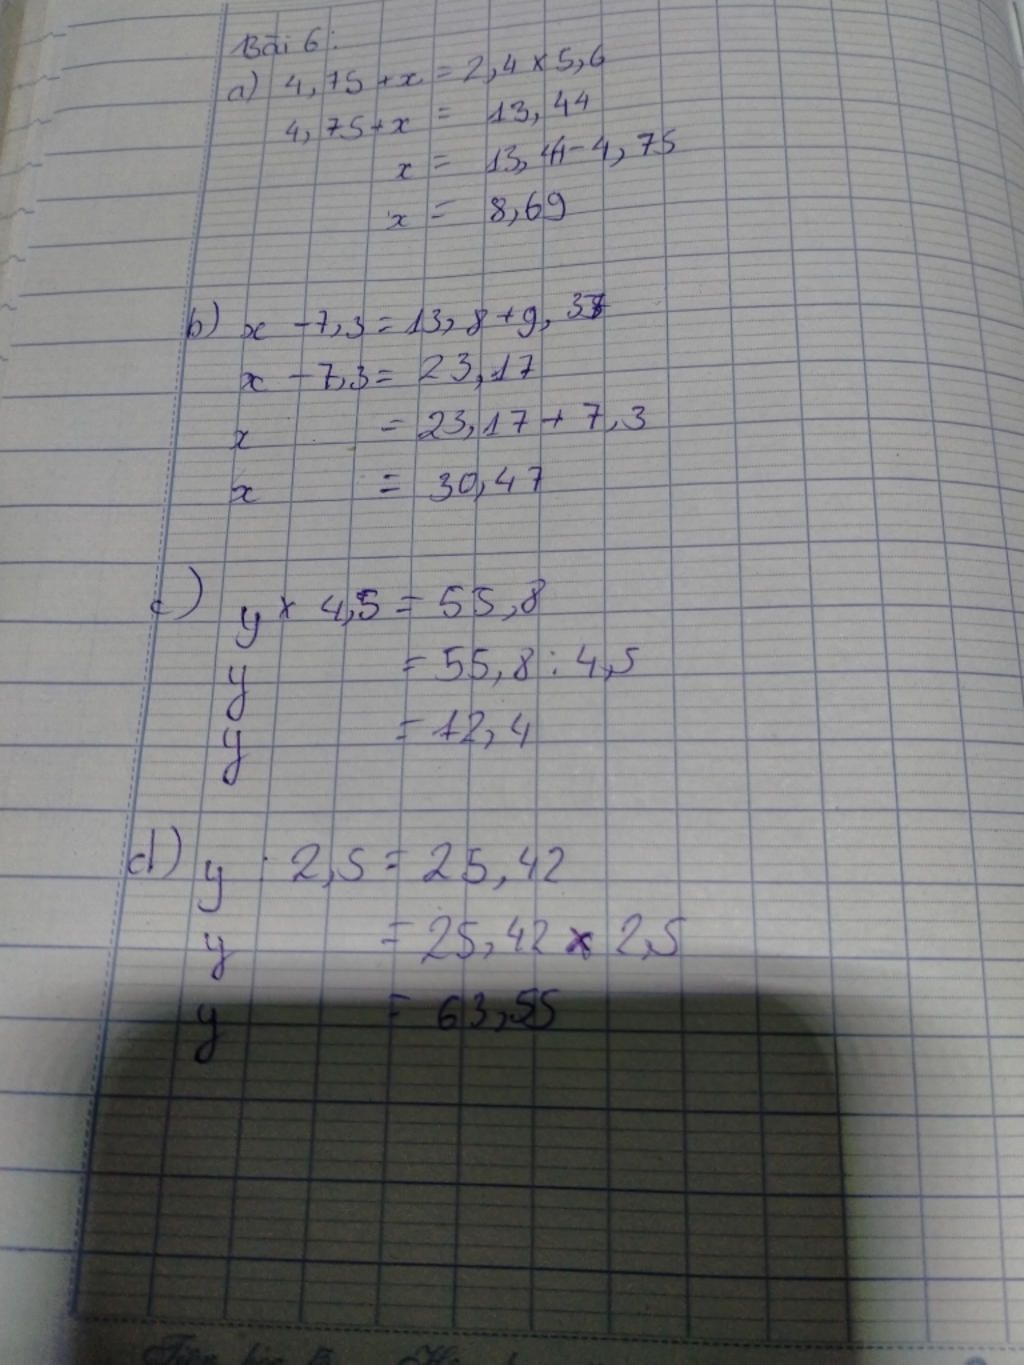 Bài 6:
a) 4,75 + x = 2,4 x 5,6
4,75 + x = 13,44
x = 13,44 - 4,75
x = 8,69
b) x - 7,3 = 13,8 + 9,37
x - 7,3 = 23,17
x = 23,17 + 7,3
x = 30,47
c) y x 4,5 = 55,8
y = 55,8 : 4,5
y = 12,4
d) y : 2,5 = 25,42
y = 25,42 x 2,5
y = 63,55